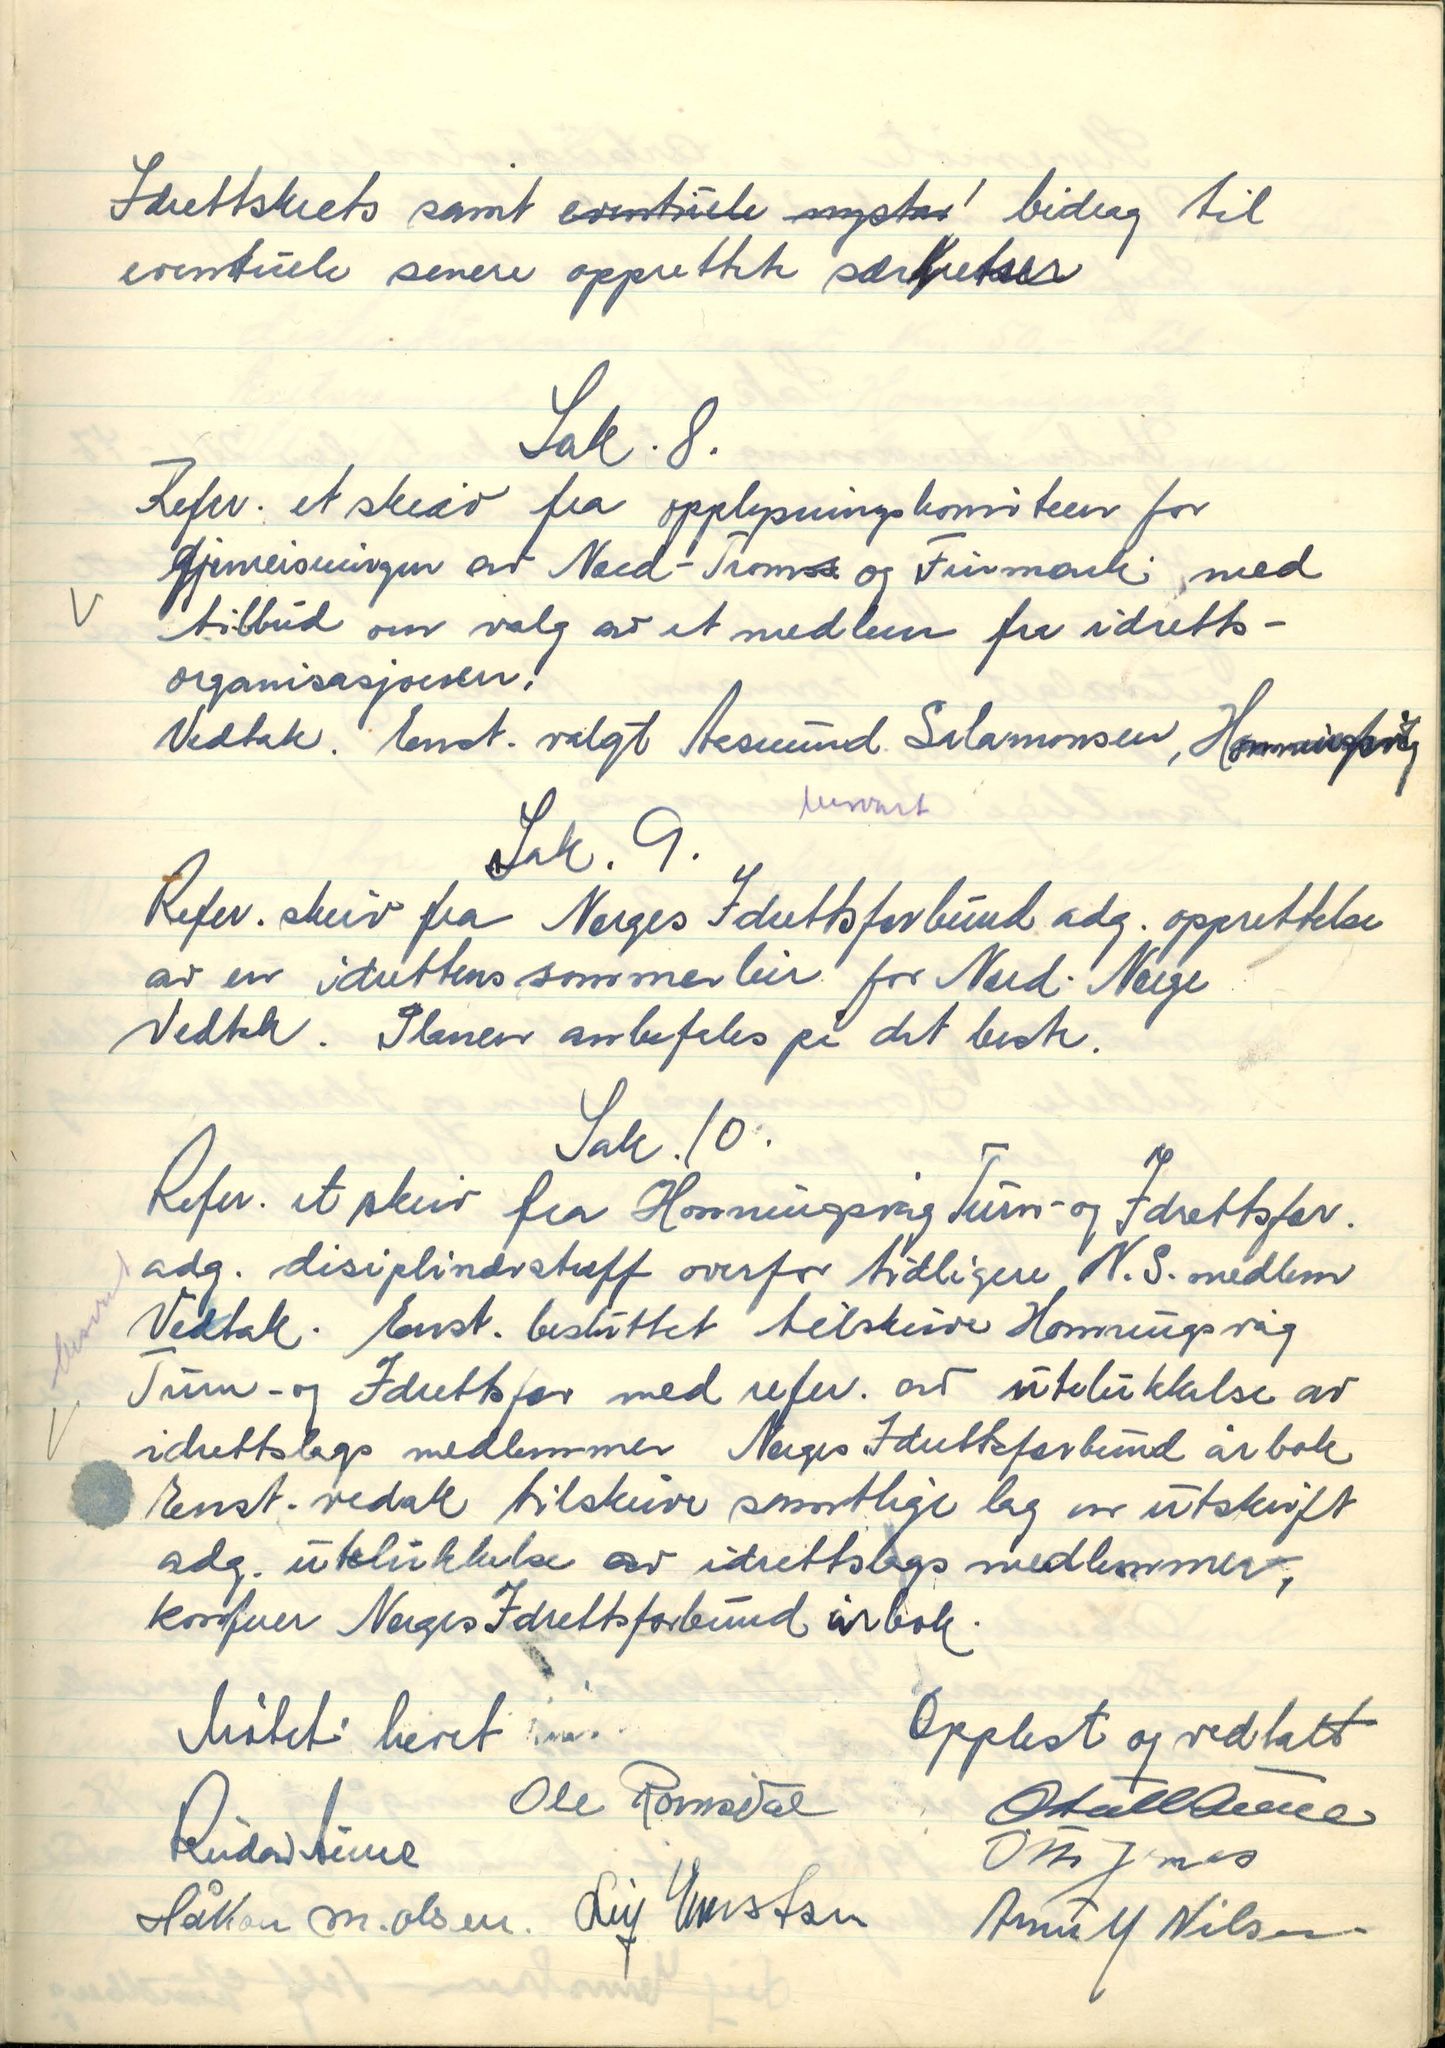 Idrettskrets samt eventuele bidrag til
eventuele senere opprettete særkretser
Sak. 8.
Refer. et skriv fra opplysningskomiteen for
gjenreisningen av Nord-Troms og Finmark, med
V
tilbud om valg av et medlem fra idretts-
organisasjonen.
Vedtak. Enst. valgt Aasmund Salamonsen, Honningsvåg
besvart
Sak. 9.
Refer. skriv fra Norges Idrettsforbund adg. opprettelse
av en idrettens sommerleir for Nord-Norge
Vedtak. Planen anbefales på det beste.
Sak. 10.
Refer. et skriv fra Honningsvåg Turn- og Idrettsfor.
adg. disiplinærstraff overfor tidligere N.S. medlem
besvart
Vedtak. Enst. besluttet tilskrive Honningsvåg
Turn- og Idrettsfor med refer. av utelukkelse av
V
idrettslags medlemmer Norges Idrettsforbund årbok
Enst. vedak tilskrive samtlige lag en utskrift
adg. utelukkelse av idrettslags medlemmer,
konfrer Norges Idrettsforbund årbok.
Møtet hevet
Opplest og vedtatt
Ole Romsdal
Reidar
Otto Jenses
Håkon M. Olsen. Leif Ernstsen Arnulf Nilsen